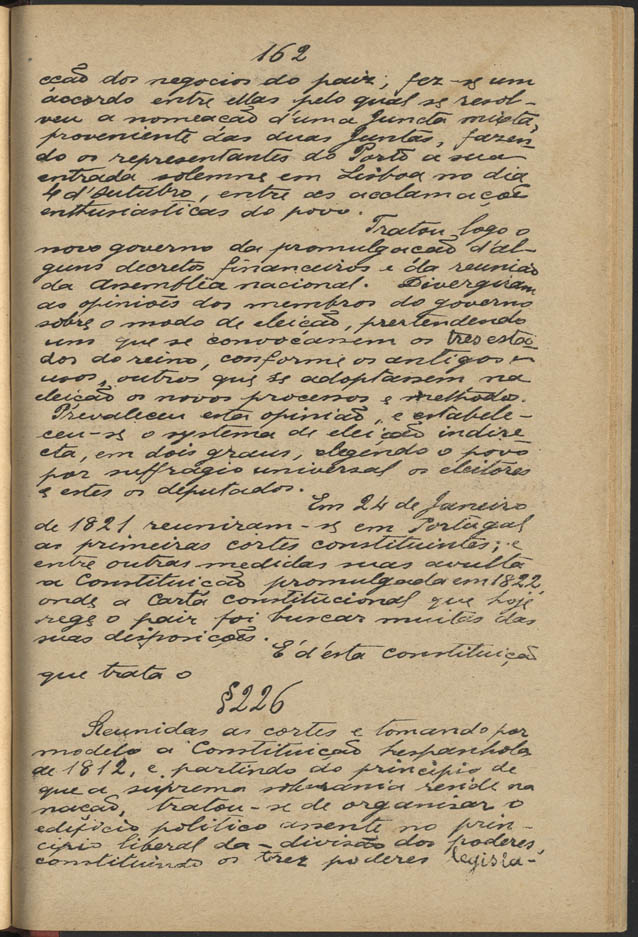 162
cção dos negocios do paiz; fez-se um
accordo entre ellas pelo qual se resol-
veu a nomeação d'uma Junda mixta,
proveniente das duas Juntas, fazen-
do os representantes do Porto a sua
entrada solemne em Lisboa no dia
4 d'Outubro, entre as acclamações
enthusiasticas do povo.
Tratou logo o
novo governo da promulgação d'al-
guns decretos financeiros e da reunião
da assemblia nacional. Divergiram
as opiniões dos membros do governo
sobre o modo de eleição, pretendendo
uns que se convocassem os tres esta-
dos do reino, conforme os antigos
usos, outros que se adoptassem na
eleição os novos processos e methodo.
Prevaleceu esta opinião, e estabele-
ceu-se o systema de eleição indire-
cta, em dois graus, elegendo o povo
por suffragio universal os eleitores
e estes os deputados.
Em 24 de Janeiro
de 1821 reuniram-se em Portugal
as primeiras côrtes constituintes; e
entre outras medidas suas avulta
a Constituição promulgada em 1822,
onde a Carta constitucional que hoje
rege o paiz foi buscar muitas das
suas disposições.
É d'esta constituição
que trata o
§226
Reunidas as cortes e tomando por
modelo a Constituição hespanhola
de 1812, e partindo do principio de
que a suprema soberania reside na
nação, tratou-se de organisar o
edificio politico assente no prin-
cipio liberal da divisão dos poderes,
constituindo os trez poderes legisla-